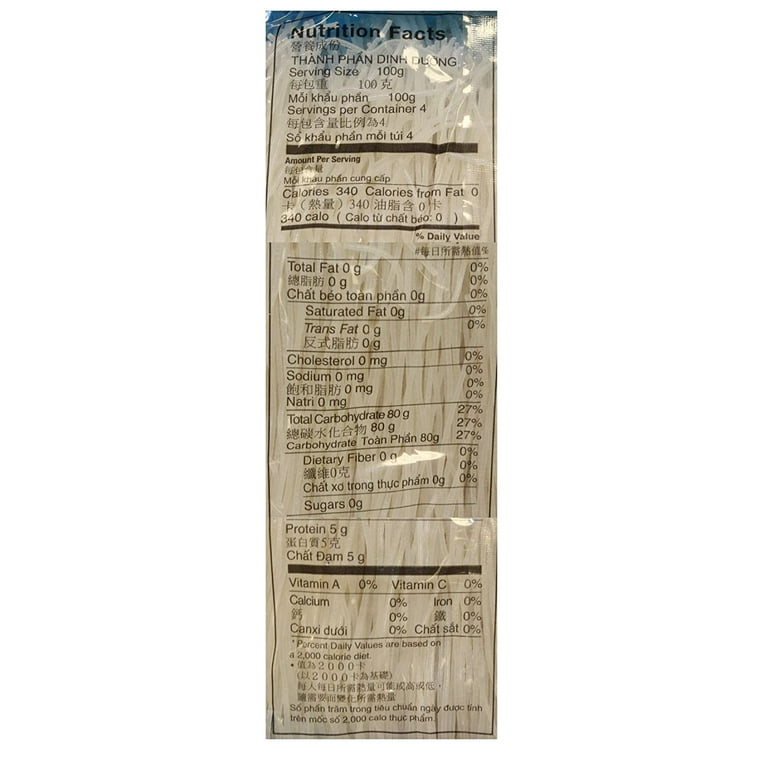 Nutrition Facts
營養成份
THÀNH PHẦN DINH DƯỠNG
Serving Size 100g
每包重 100克
Mỗi khẩu phần 100g
Servings per Container 4
每包含量比例為4
Số khẩu phần mỗi túi 4
Amount Per Serving
每包含量
Mỗi khẩu phần cung cấp
Calories 340 Calories from Fat 0
卡（熱量）340 油脂含 0 卡
340 calo ( Calo từ chất béo: 0 )
% Daily Value
#每日所需熱值%
Total Fat 0 g 0%
總脂肪 0 g 0%
Chất béo toàn phần 0g 0%
Saturated Fat 0g 0%
Trans Fat 0 g 0%
反式脂肪 0 g
Cholesterol 0 mg 0%
Sodium 0 mg 0%
飽和脂肪 0 mg 0%
Natri 0 mg 0%
Total Carbohydrate 80 g 27%
總碳水化合物 80 g 27%
Carbohydrate Toàn Phần 80g 27%
Dietary Fiber 0 g 0%
纖維0克 0%
Chất xơ trong thực phẩm 0g 0%
Sugars 0g
Protein 5 g
蛋白質5克
Chất Đạm 5 g
Vitamin A 0% Vitamin C 0%
Calcium 0% Iron 0%
鈣 0% 鐵 0%
Canxi dưới 0% Chất sắt 0%
*Percent Daily Values are based on
a 2,000 calorie diet.
• 值為2000卡
(以2000卡為基礎)
每人每日所需熱量可能或高或低,
隨需要而變化所需熱量
Số phần trăm trong tiêu chuẩn ngày được tính
trên mốc số 2,000 calo thực phẩm.